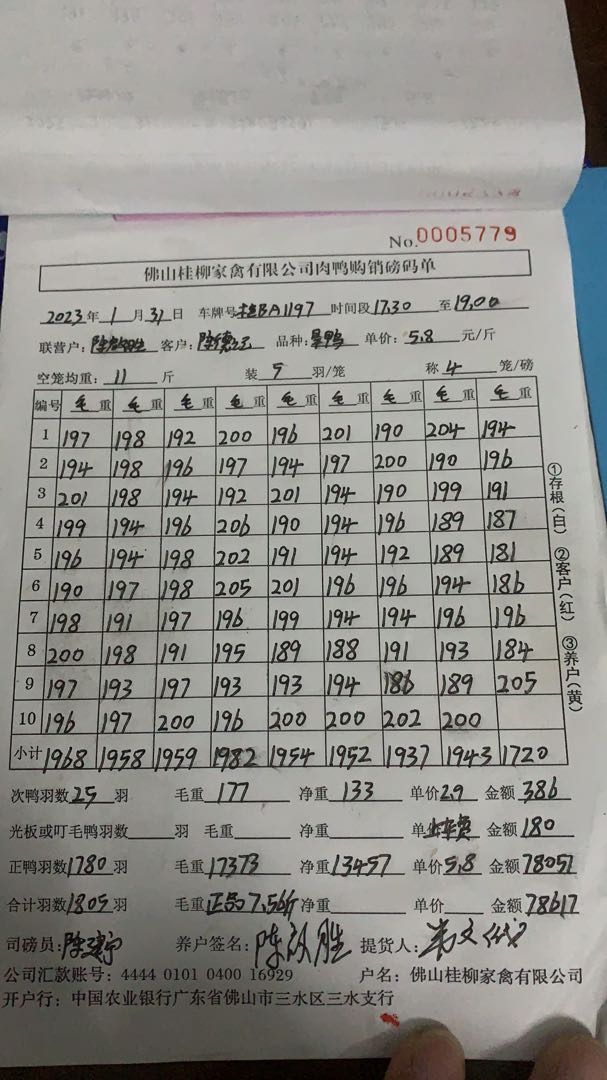 No.0005779
佛山桂柳家禽有限公司肉鸭购销磅码单
2023年1月31日 车牌号桂BA1197 时间段17.30至19.00
联营户: 客户: 品种: 单价:5.8元/斤
空笼均重:11斤 装5羽/笼 称4笼/磅
编号 毛重 毛重 毛重 毛重 毛重 毛重 毛重 毛重 毛重
1 197 198 192 200 196 201 190 204 194
2 194 198 196 197 194 197 200 190 196
3 201 198 194 192 201 194 190 199 191
4 199 194 196 206 190 194 196 189 187
5 196 194 198 202 191 194 192 189 181
6 190 197 198 205 201 196 196 194 186
7 198 191 197 196 199 194 194 196 196
8 200 198 191 195 189 188 191 193 184
9 197 193 197 193 193 194 186 189 205
10 196 197 200 196 200 200 202 200
小计 1968 1958 1959 1982 1954 1952 1937 1943 1720
①存根(白) ②客户(红) ③养户(黄)
次鸭羽数25羽 毛重177 净重133 单价2.9 金额386
光板或叮毛鸭羽数 羽 毛重 净重 单 金额180
正鸭羽数1780羽 毛重17373 净重13457 单价5.8 金额78051
合计羽数1805羽 毛重正品7.56斤 净重 单价 金额78617
司磅员: 养户签名: 提货人:
公司汇款账号:4444 0101 0400 16929 户名:佛山桂柳家禽有限公司
开户行:中国农业银行广东省佛山市三水区三水支行